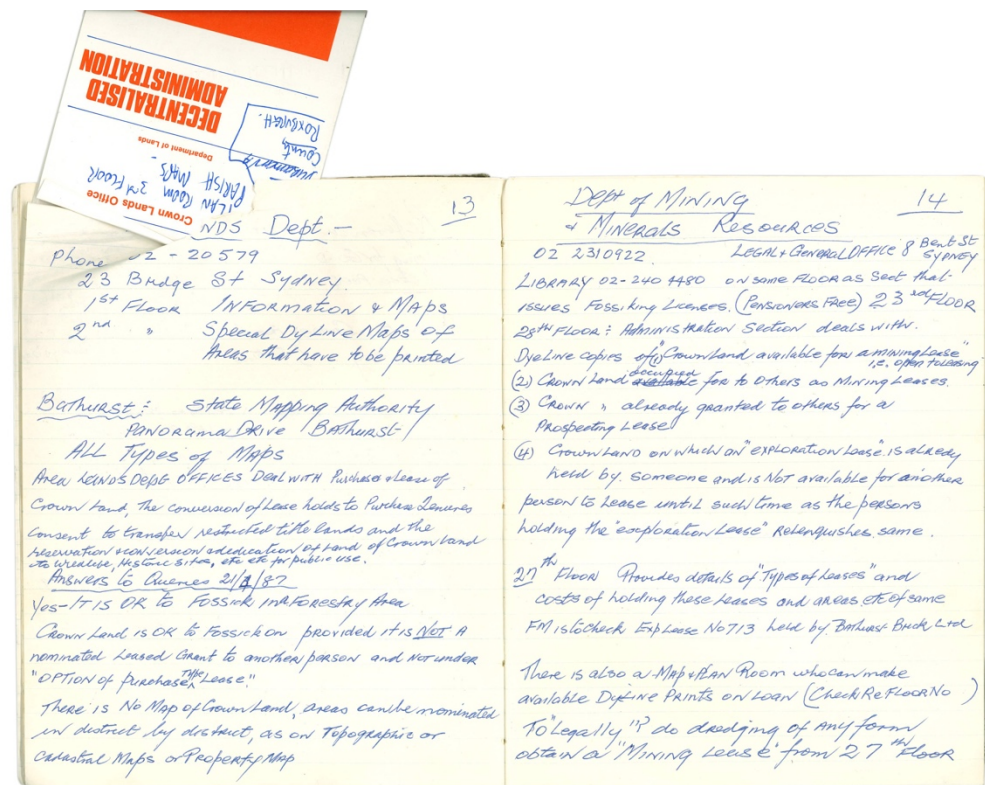 Crown Lands Office
PLAN ROOM 3rd FLOOR
PARISH MAPS -
Department of Lands
County
ROXBURGH.
DECENTRALISED
ADMINISTRATION
13
NDS Dept. -
Phone 02 - 20579
23 Bridge St Sydney.
1st Floor INFORMATION & MAPS
2nd " Special DyLine Maps of
Areas that have to be printed
Bathurst: State Mapping Authority
PANORAMA DRIVE BATHURST
ALL Types of Maps
Area LANDS DEPT OFFICES Deal with Purchase & Lease of
Crown Land, The conversion of Lease holds to Purchase Tenures
Consent to transfer restricted title lands and the
reservation & conversion & dedication of land of Crown Land
to Historic Sites, etc etc for public use.
Answers to Queries 21/ /87
Yes - IT IS OK to Fossick in a Forestry Area
Crown Land is OK to Fossick on provided it is NOT A
nominated Leased Grant to another person and NOT under
"OPTION of purchase TYPE Lease".
There is No Map of Crown Land, areas can be nominated
in district by district, as on Topographic or
Cadastral Maps or Property Map
14
Dept of MINING
& MINERALS RESOURCES
02 2310922. LEGAL & GENERAL OFFICE 8 Bent St
SYDNEY
LIBRARY 02-240 4480 on same FLOOR as Sect that
issues Fossiking Licenses. (PENSIONERS FREE) 23rd FLOOR
28th FLOOR: Administration Section deals with.
DyeLine copies of (1) "Crown Land available for a mining Lease"
i.e. open to leasing
(2) CROWN Land available occupied for to Others as Mining Leases.
(3) CROWN " already granted to others for a
Prospecting Lease
(4) Crown LAND on which an "exploration Lease" is already
held by someone and is NOT available for another
person to Lease until such time as the persons
holding the "exploration Lease" relenguishes same.
27th Floor Provides details of "Types of Leases" and
costs of holding these Leases and areas etc of same
FM is to check Exp Lease No 713 held by Bathurst Brick Ltd
There is also a Map & Plan Room who can make
available DyeLine Prints on Loan (Check Re FLOOR No )
To "Legally"!? do dredging of ANY form
obtain a "Mining Lease" from 27th Floor